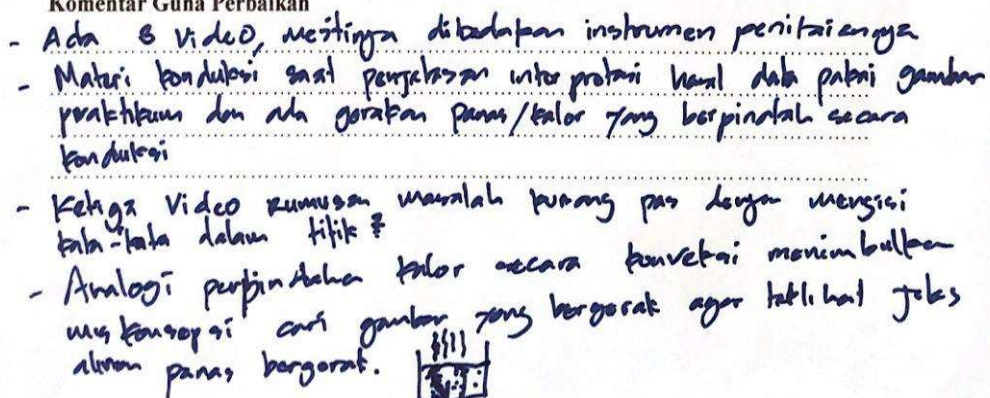 Komentar Guna Perbaikan
- Ada 3 Video, mestinya dibedakan instrumen penilaiannya
- Materi konduksi saat penjelasan interprotasi hasil data pakai gambar
praktikum dan ada gerakan panas/kalor yang berpindah secara
konduksi
- Ketiga Video rumusan masalah kurang pas dengan mengisi
kata-kata dalam titik²
- Analogi perpindahan kalor secara konveksi menimbulkan
miskonsepsi cari gambar yang bergerak agar terlihat jelas
aliran panas bergerak.